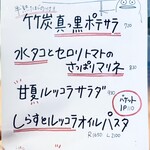 竹炭真っ黒ポテサラ
水タコとセロリトマトの
さっぱりマリネ
甘夏ルッコラサラダ
バゲット
1P
しらすとルッコラオイルパスタ